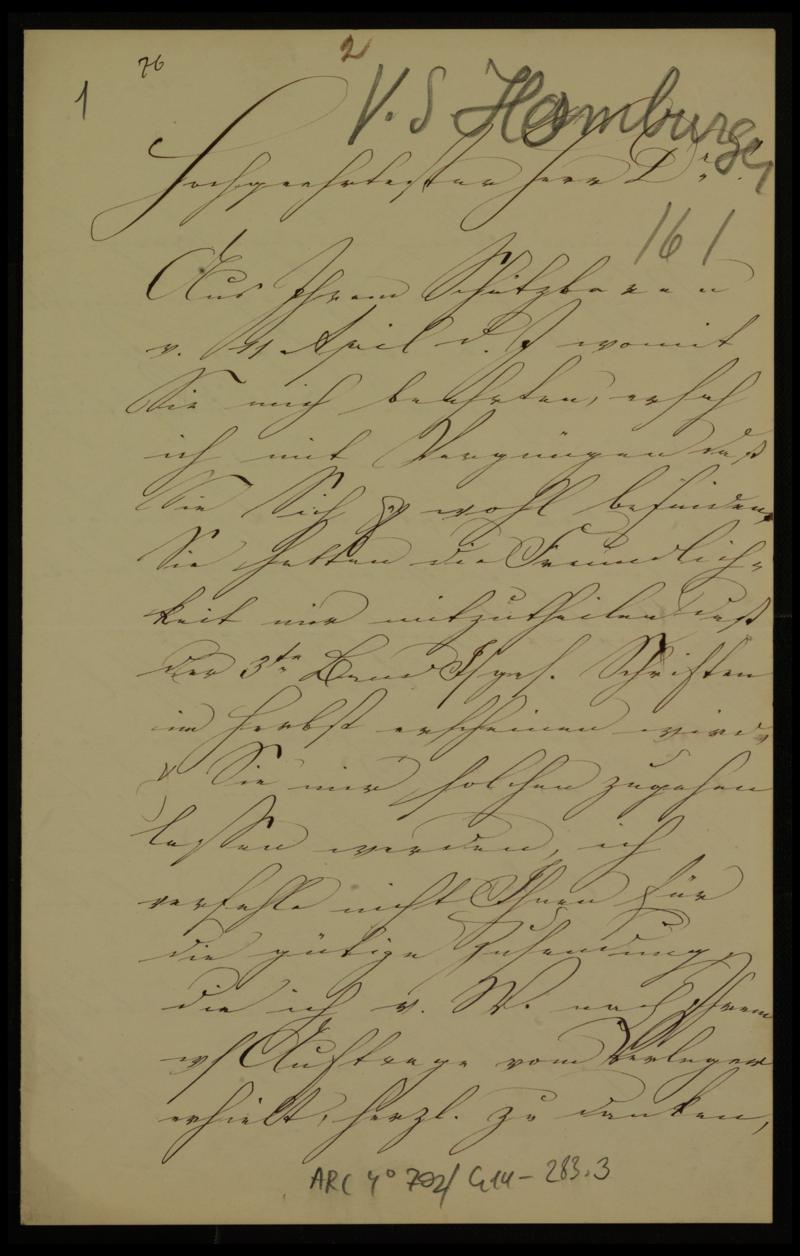 76
2
1
V. S Hamburger
Hochgeehrtester Herr Dr.
161
Aus Ihrem Schätzbaren
v. 11 April d. J womit
Sie mich beehrten, ersah
ich mit Vergnügen daß
Sie Sich wohl befinden,
Sie hatten die Freundlich-
keit mir mitzutheilen daß
der 3te Band Ihrer Schriften
im Herbst erscheinen wird,
Sie mir solchen zugehen
lassen werden, ich
verfehle nicht Ihnen für
die gütige Zusendung,
die ich v. W. nach Ihrem
Auftrage vom Verleger
erhielt, herzl. zu danken,
ARC 4° 792/ G14 - 283.3